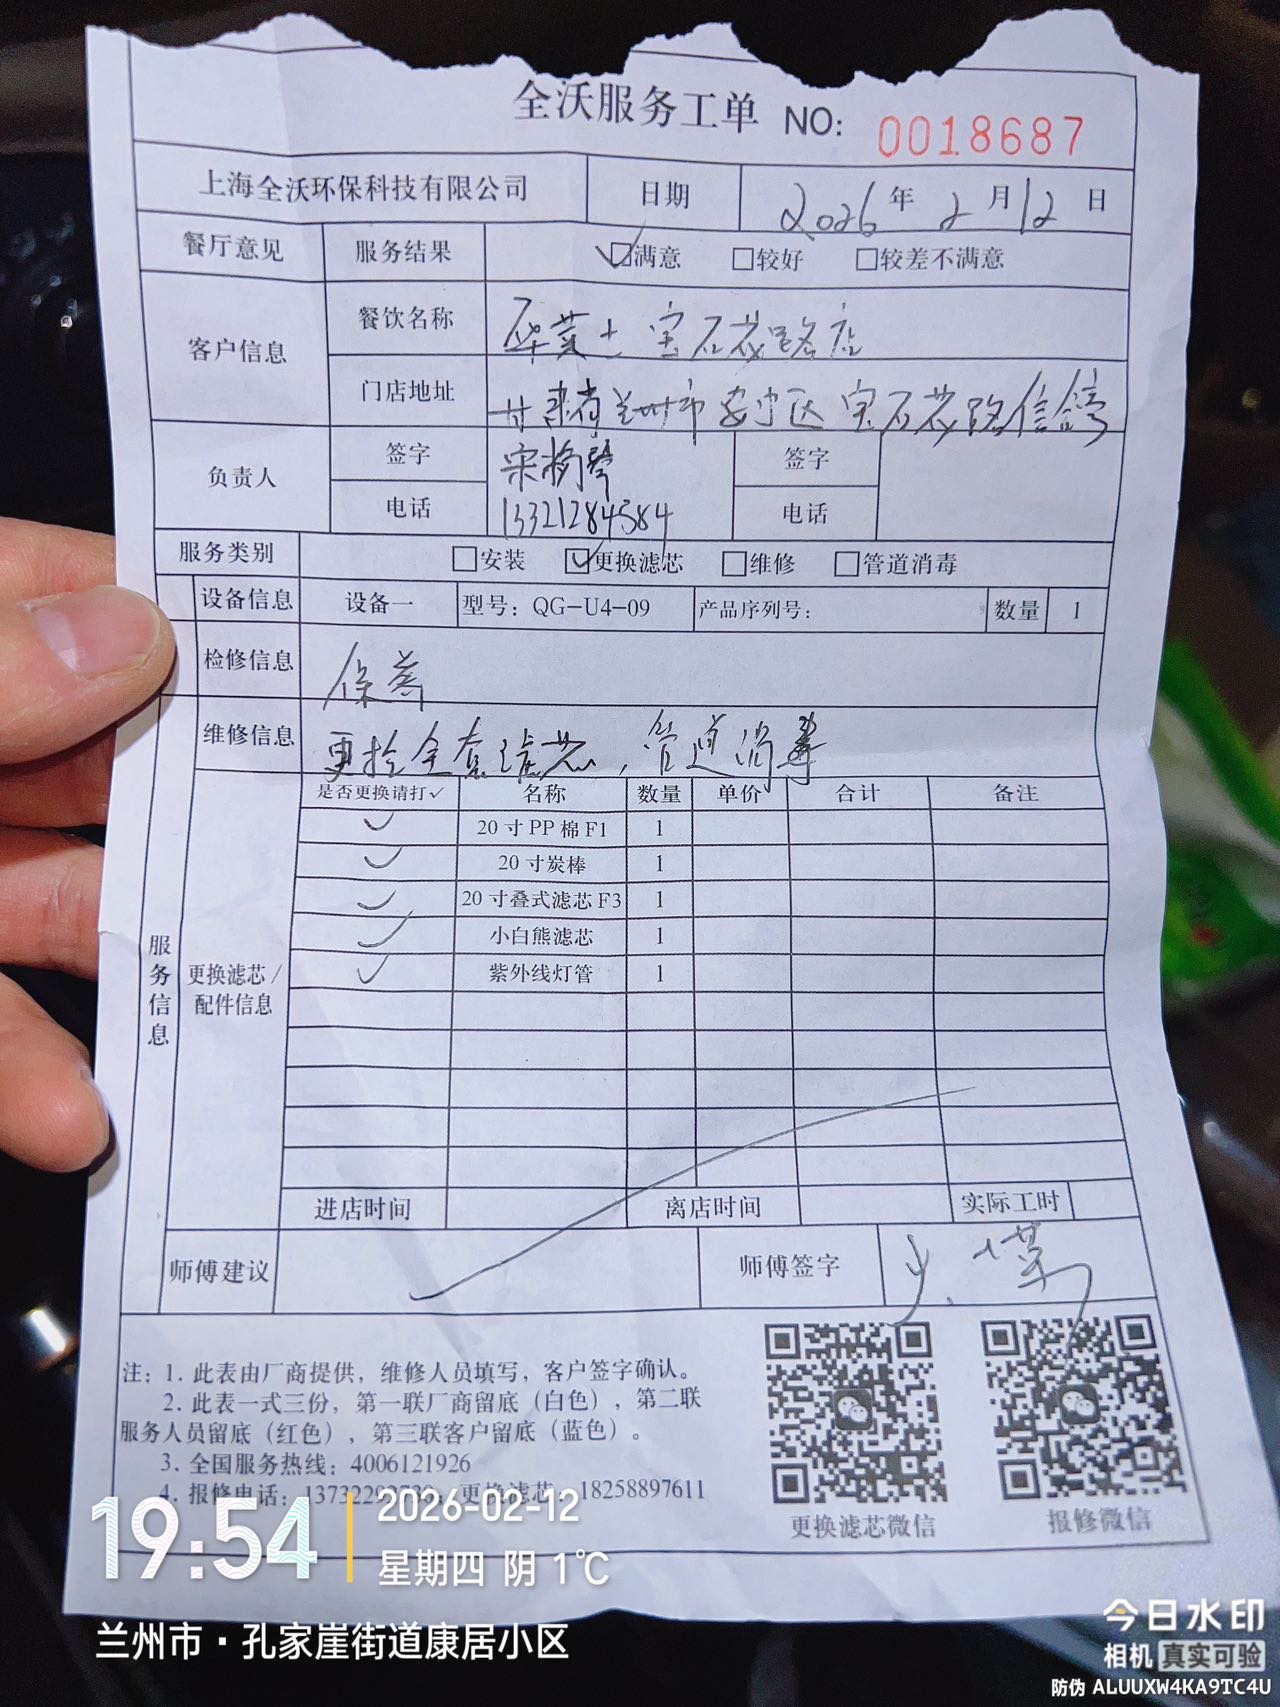 全沃服务工单 NO: 0018687
上海全沃环保科技有限公司 日期 2026年2月12日
餐厅意见 服务结果 ☑满意 □较好 □较差不满意
客户信息 餐饮名称 华莱士宝石花路店
门店地址 甘肃省兰州市安宁区宝石花路信
负责人 签字 宋 琴 签字
电话 13321284584 电话
服务类别 □安装 ☑更换滤芯 □维修 □管道消毒
设备信息 设备一 型号：QG-U4-09 产品序列号： 数量 1
检修信息 保养
维修信息 更换全套滤芯，管道消毒
服务信息
更换滤芯/配件信息
是否更换请打✓ 名称 数量 单价 合计 备注
✓ 20寸PP棉F1 1
✓ 20寸炭棒 1
✓ 20寸叠式滤芯F3 1
✓ 小白熊滤芯 1
✓ 紫外线灯管 1
进店时间 离店时间 实际工时
师傅建议 师傅签字
注：1. 此表由厂商提供，维修人员填写，客户签字确认。
2. 此表一式三份，第一联厂商留底（白色），第二联
服务人员留底（红色），第三联客户留底（蓝色）。
3. 全国服务热线：4006121926
4. 报修电话： 更换滤芯：18258897611
更换滤芯微信 报修微信
19:54 2026-02-12
星期四 阴 1℃
兰州市·孔家崖街道康居小区
今日水印
相机 真实可验
防伪 ALUUXW4KA9TC4U